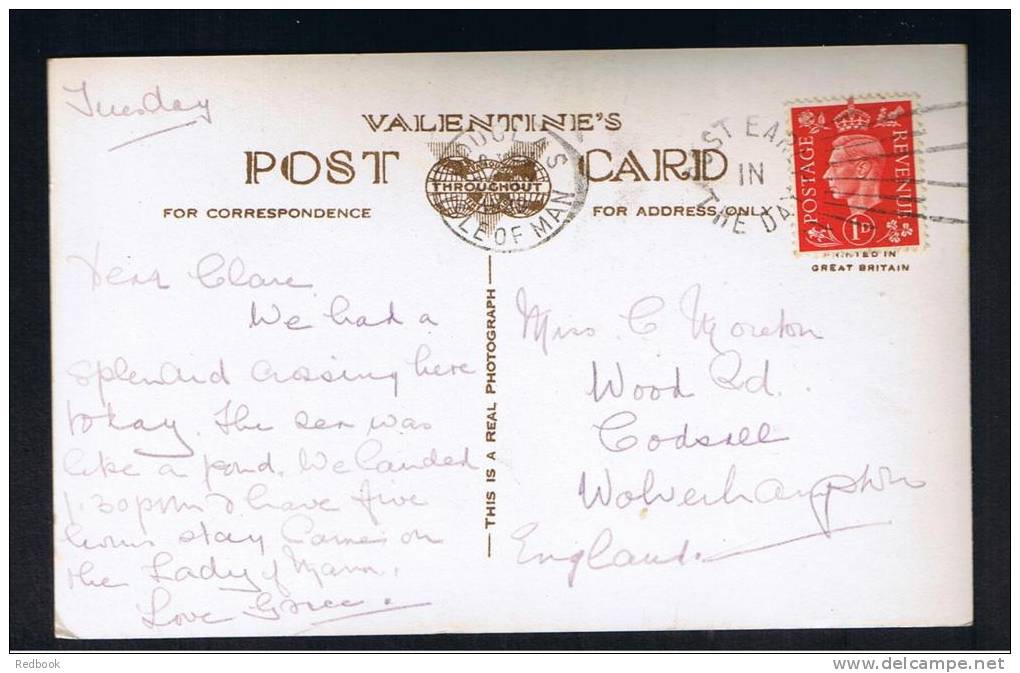 Tuesday
VALENTINE'S
POST CARD
THROUGHOUT
FOR CORRESPONDENCE
FOR ADDRESS ONLY
ISLE OF MAN
IN
THE DAY
POSTAGE
REVENUE
1D
PRINTED IN
GREAT BRITAIN
Dear Clare
We had a
splendid crossing here
today. The sea was
like a pond. We landed
1.30pm & have five
hours stay Came on
the Lady of Mann.
Love Grace.
THIS IS A REAL PHOTOGRAPH
Miss C Moreton
Wood Rd.
Codsall
Wolverhampton
England.
Redbook
www.delcampe.net